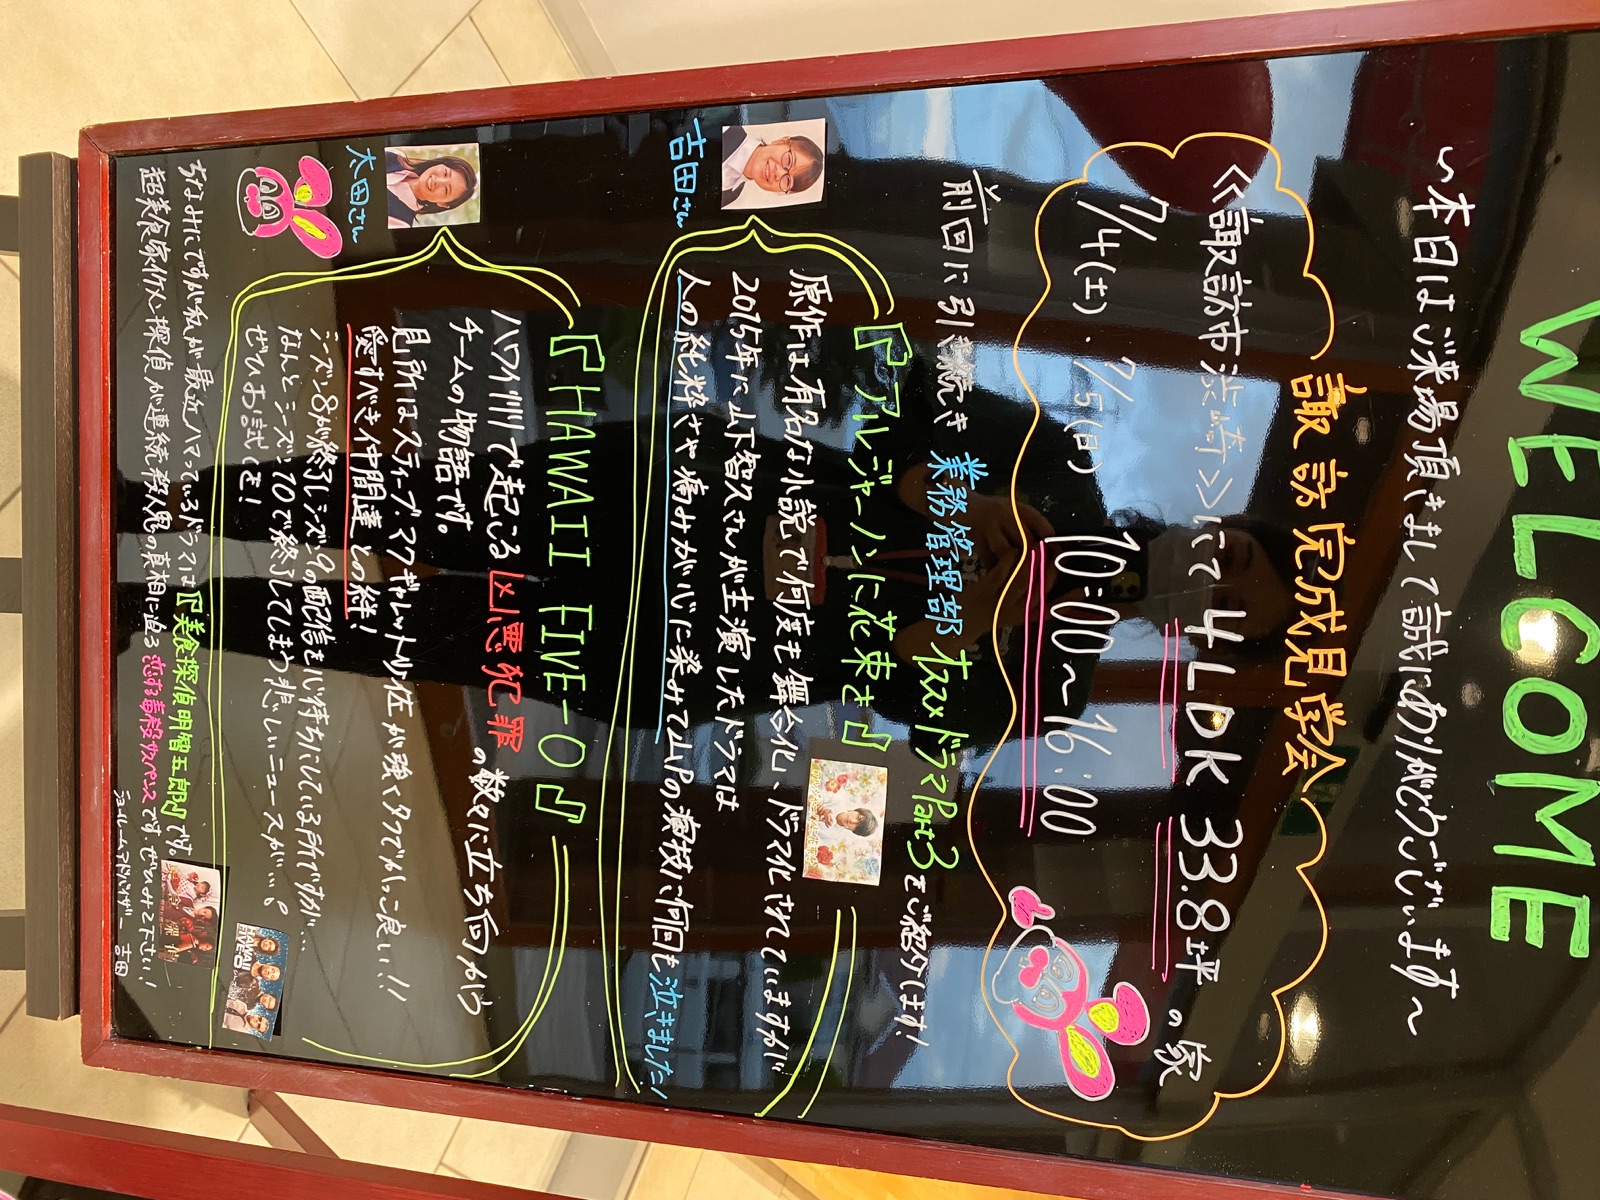 WELCOME
～本日はご来場頂きまして誠にありがとうございます～
諏訪完成見学会
《諏訪市渋崎》にて4LDK 33.8坪の家
7/4(土)・7/5(日) 10:00～16:00
前回に引き続き 業務管理部 オススメドラマPart3をご紹介します!
吉田さん
『アルジャーノンに花束を』
原作は有名な小説で何度も舞台化、ドラマ化されていますが
2015年に山下智久さんが主演したドラマは
人の純粋さや痛みが心に染みて山Pの演技に何回も泣きました!
太田さん
『HAWAII FIVE-O』
ハワイ州で起こる凶悪犯罪の数々に立ち向かう
チームの物語です。
見所はスティーブ・マクギャレット少佐が強くタフでかっこ良い!!
愛すべき仲間達との絆!
シーズン8が終了しシーズン9の配信を心待ちにしている所ですが…
なんとシーズン10で終了してしまう悲しいニュースが…。
ぜひお試しを!
HAWAII FIVE-O
ちなみにですが私が最近ハマっているドラマは『美食探偵 明智五郎』です。
超美食家の探偵が連続殺人鬼の真相に迫る 恋する毒殺サスペンスです ぜひみて下さい!
ショールームアドバイザー 吉田